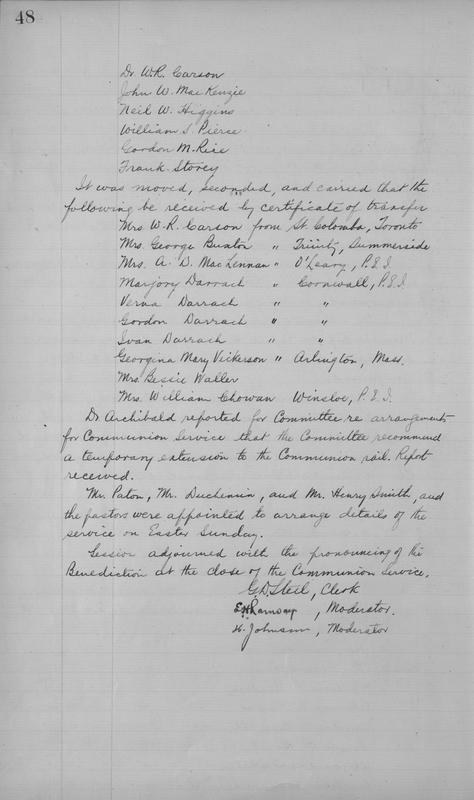 48
Dr. W.R. Carson
John W. MacKenzie
Neil W. Higgins
William S. Pierce
Gordon M. Rice
Frank Storey
It was moved, seconded, and carried that the
following be received by certificate of transfer
Mrs W. R. Carson from St. Columba, Toronto
Mrs. George Bunton " Trinity, Summerside
Mrs. A. D. MacLennan " O'Leary, P.E.I.
Marjory Darrach " Cornwall, P.E.I.
Verna Darrach " "
Gordon Darrach " "
Ivan Darrach " "
Georgina Mary Vickerson " Arlington, Mass.
Mrs. Bessie Waller
Mrs. William Chowan Winsloe, P.E.I.
Dr. Archibald reported for Committee re arrangements
for Communion Service that the Committee recommend
a temporary extension to the Communion rail. Report
received.
Mr. Paton, Mr. Duchemin, and Mr. Henry Smith, and
the pastors were appointed to arrange details of the
service on Easter Sunday.
Session adjourned with the pronouncing of the
Benediction at the close of the Communion Service.
G.D. Steel, Clerk
E.H. Ramsay, Moderator.
H. Johnson, Moderator